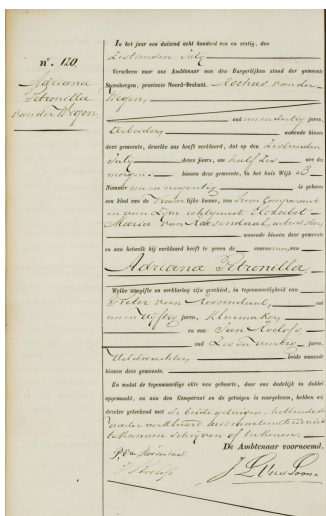 In het jaar een duizend acht honderd een en zestig, den
Zestienden July
Verscheen voor ons Ambtenaar van den Burgerlijken stand der gemeente
Steenbergen, provincie Noord-Brabant, van der
Wegen,
oud een en dertig jaren,
Arbeider, wonende binnen
deze gemeente, dewelke ons heeft verklaard, dat op den Zestienden
July dezes jaars, om half zes ure des
morgens binnen deze gemeente, in het huis Wijk B
Nommer een en negentig is geboren
een kind van de Vrouwelijke kunne, van hem Comparant
en van zijne echtgenoot Elizabet
Maria van Roosendaal, arbeidster,
wonende binnen deze gemeente
en aan hetwelk hij verklaard heeft te geven de voornamen van
Adriana Petronella
Welke aangifte en verklaring zijn geschied, in tegenwoordigheid van
Pieter van Roosendaal, oud
een en vijftig jaren, Kleermaker,
en van Jan Roelofs,
oud Zes en Veertig jaren,
Veldwachter, beide wonende
binnen deze gemeente.
En nadat de tegenwoordige akte van geboorte, door ons dadelijk in dubbel
opgemaakt, en aan den Comparant en de getuigen is voorgelezen, hebben wij
dezelve geteekend met de beide getuigen, hebbende de
vader verklaard niet
te kunnen schrijven of teekenen.
De Ambtenaar voornoemd,
P. van Roosendaal
J. Roelofs
No. 120.
Adriana
Petronella
van der Wegen